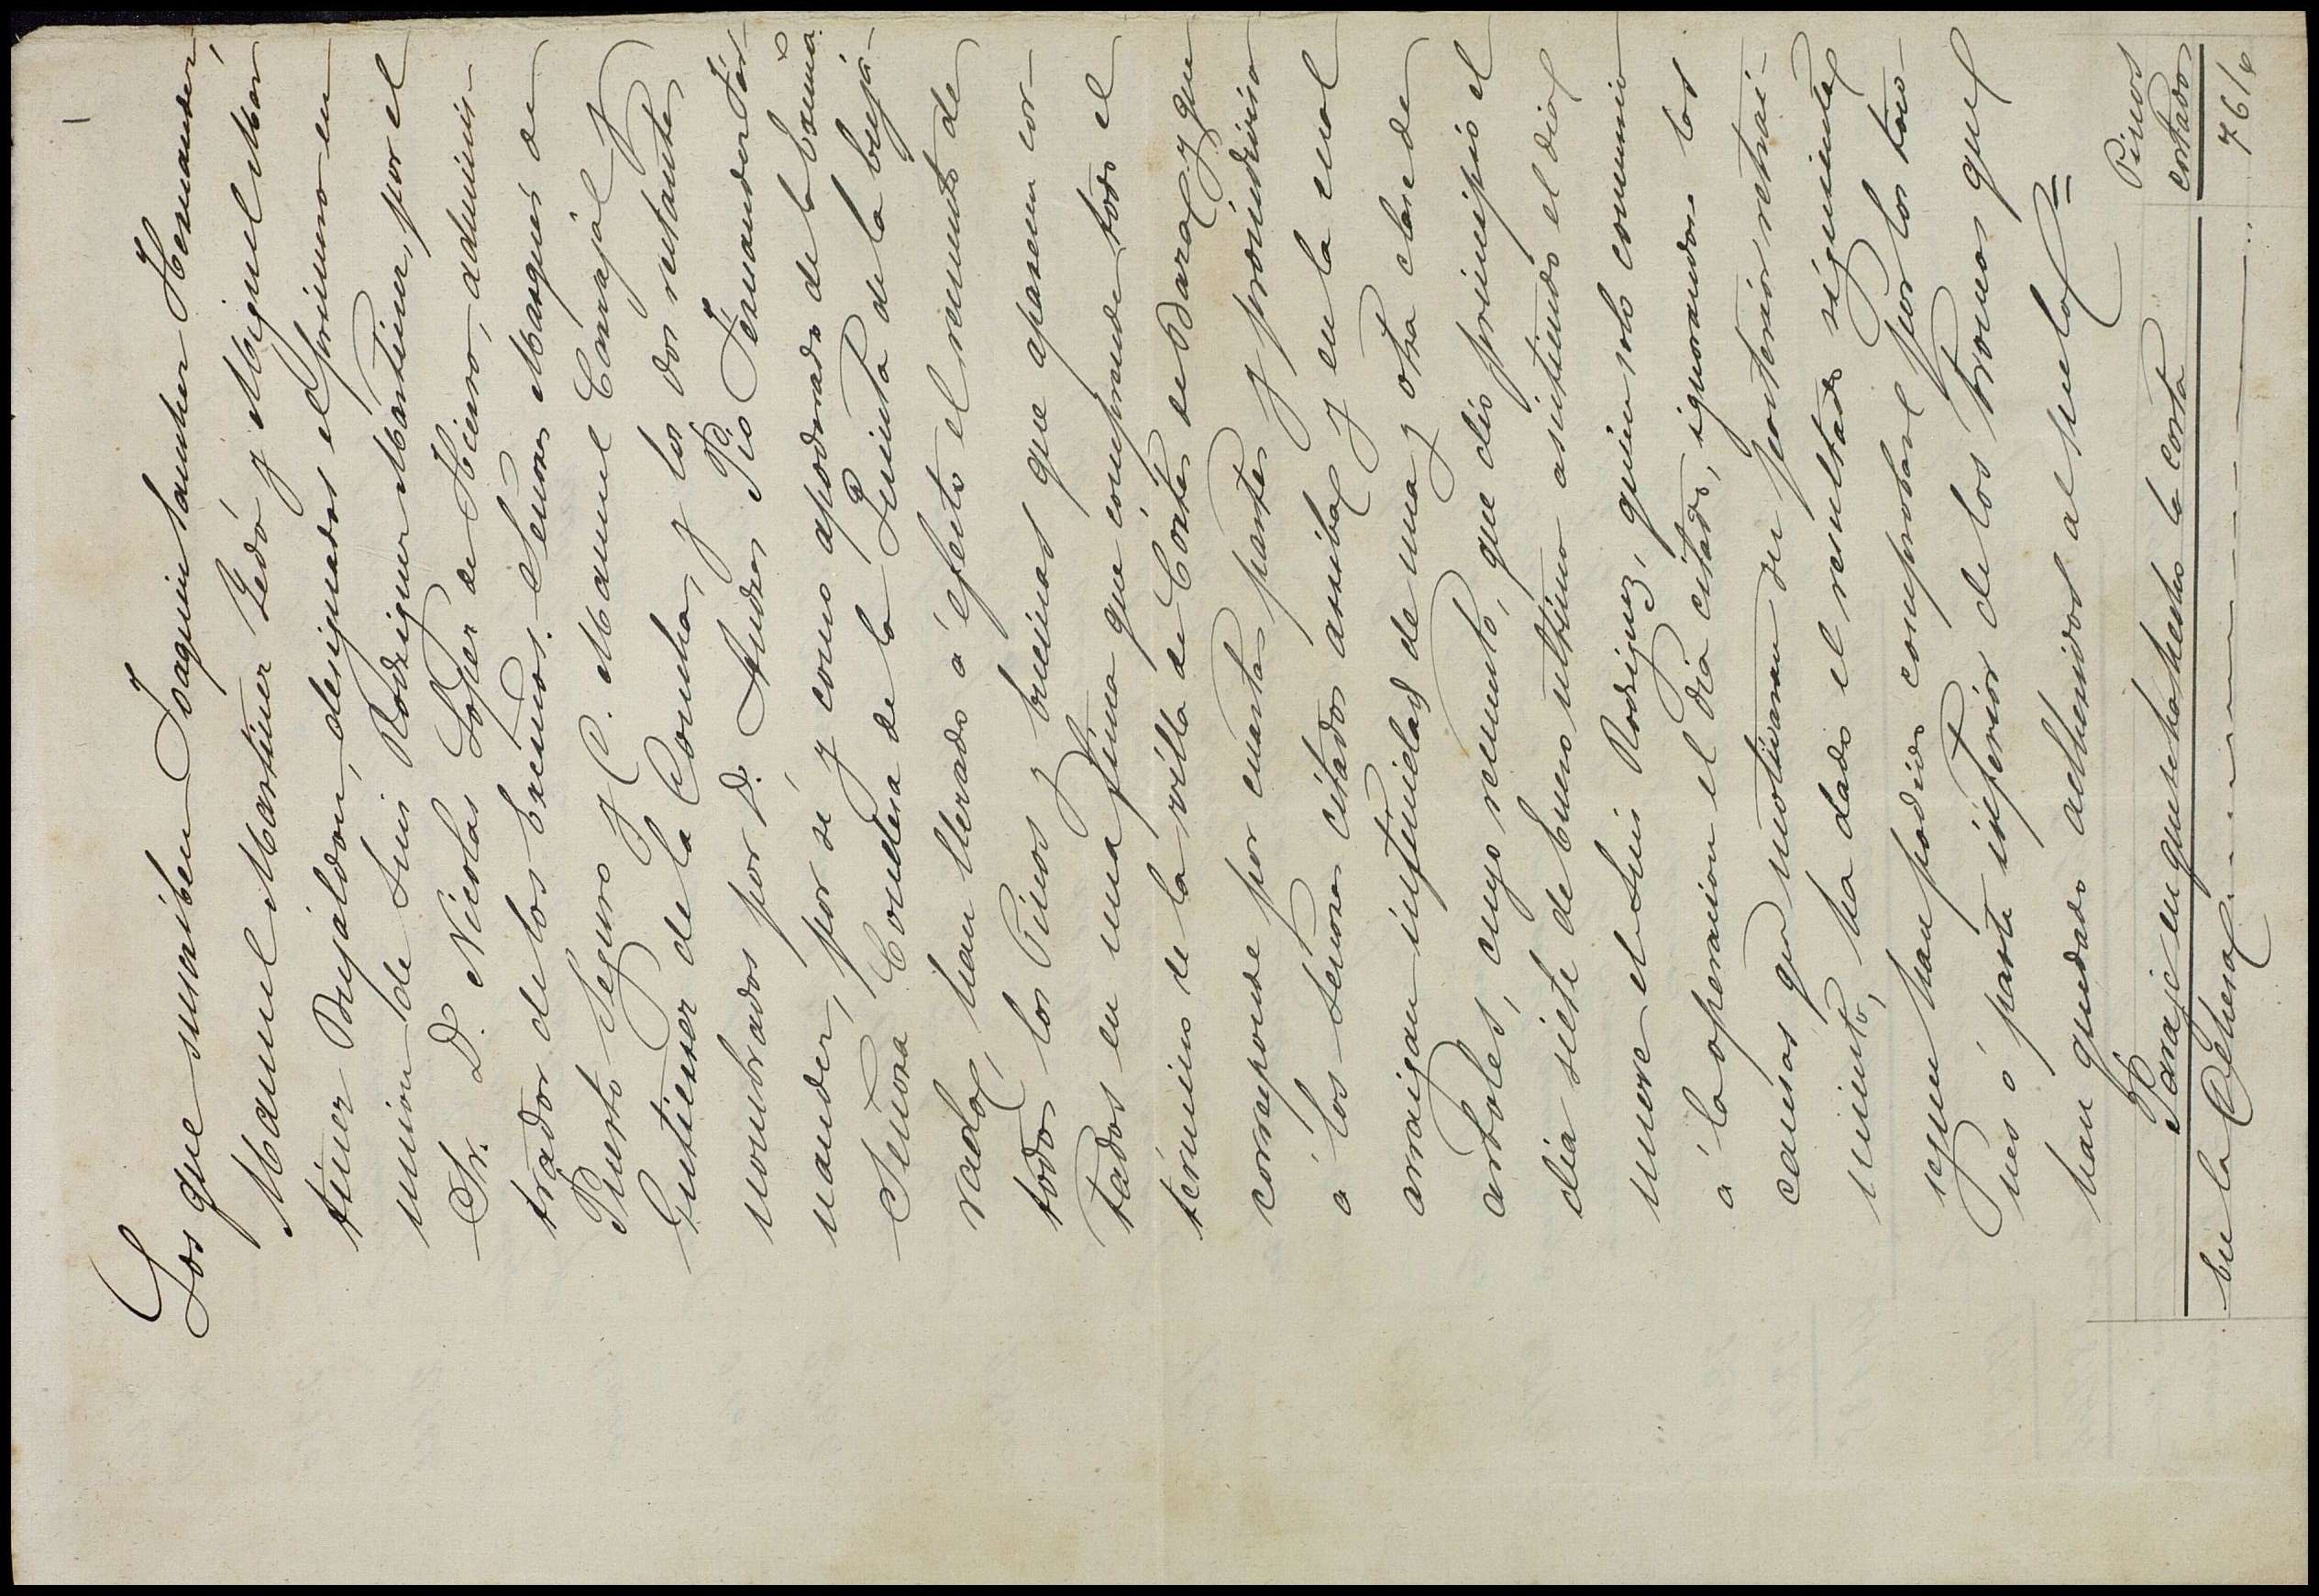 Los que suscriben Joaquin Sanchez Hernandez,
Manuel Martinez Ledó y Miguel Mar
tinez Bujaldon, designados el primero en
union de Luis Rodriguez Martinez, por el
Sr. D. Nicolas Lopez de Hierro, adminis-
trador de los Excmos. Señores Marqués de
Puerto Seguro y C. Manuel Carvajal y
Gutierrez de la Concha, y los dos restantes
nombrados por D. Andres Pio Fernandez Fer-
nandez, por sí, y como apoderado de la Excma.
Señora Condesa de la Quinta de la Enja-
rada, han llevado á efecto el recuento de
todos los Pinos y encinas que aparecen cor-
tados en una finca que comprende todo el
término de la villa de Cortes de Baza, y que
corresponde por cuartas partes y proindiviso
á los Señores citados arriba, y en la cual
arraigan infinidad de una y otra clase de
arboles, cuyo recuento, que dió principio el
dia siete de Enero ultimo asistiendo el dia
nueve el Luis Rodriguez, quien solo concurrio
á la operacion el dia citado, ignorandose las
causas que motivaran su posterior retrai-
miento, ha dado el resultado siguiente,
segun han podido comprobar por los toco-
nes ó parte inferior de los troncos que
han quedado adheridos al suelo.=
Paraje en que se ha hecho la corta Pinos cortados
En la Dehesa 761